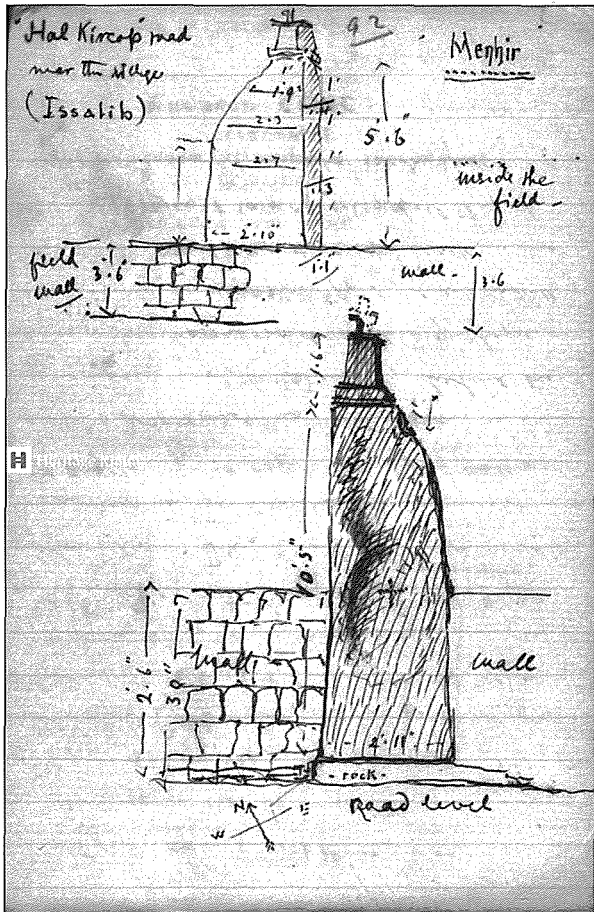 "Hal Kircop" road
near the village
(Issalib)
92
Menhir
1'
1'.9"
2.3
2.7
2'.10"
1'
1'
1'
1.3
5'.6"
inside the
field -
field
wall
3'.6"
1'.1"
wall -
3.6
1.6
1'
10'.5"
2'.6"
3.0"
wall
wall
2'.11"
- rock -
Road level
N
E